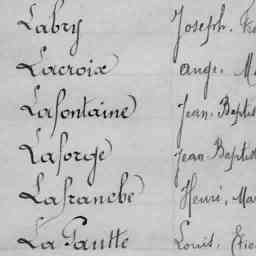 Labry Joseph.
Lacroix Ange.
Lafontaine Jean-Baptis
Laforge Jean-Baptist
Lafranche Henri, Mar
La Gautte Louis,